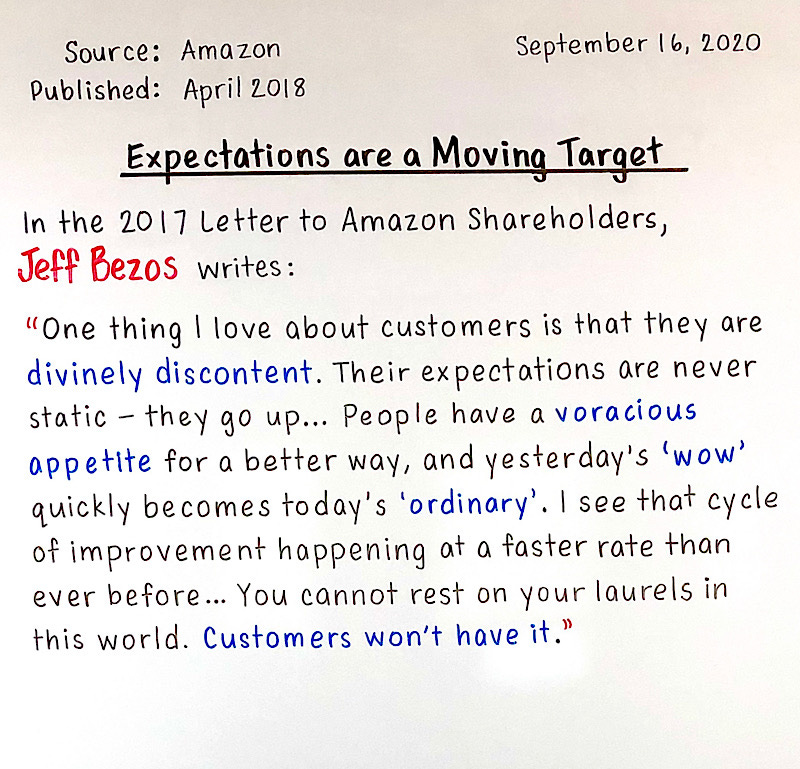 Source: Amazon
September 16, 2020
Published: April 2018
Expectations are a Moving Target
In the 2017 Letter to Amazon Shareholders,
Jeff Bezos writes:
“One thing I love about customers is that they are
divinely discontent. Their expectations are never
static – they go up... People have a voracious
appetite for a better way, and yesterday's ‘wow’
quickly becomes today's ‘ordinary’. I see that cycle
of improvement happening at a faster rate than
ever before... You cannot rest on your laurels in
this world. Customers won't have it.”